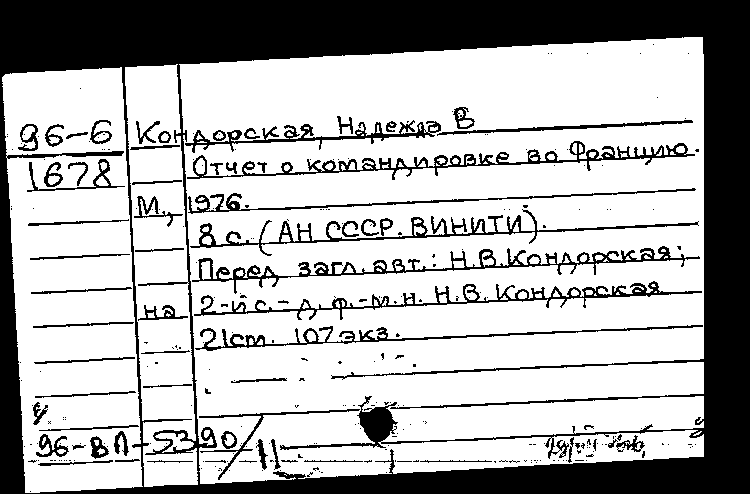 96-6 Кондорская, Надежда В
1678 Отчет о командировке во Францию.
М., 1976.
8 с. (АН СССР. ВИНИТИ).
Перед загл. авт.: Н.В.Кондорская;
на 2-й с.-д.ф.-м.н. Н.В.Кондорская
21см. 107 экз.
96-ВП-5390/11